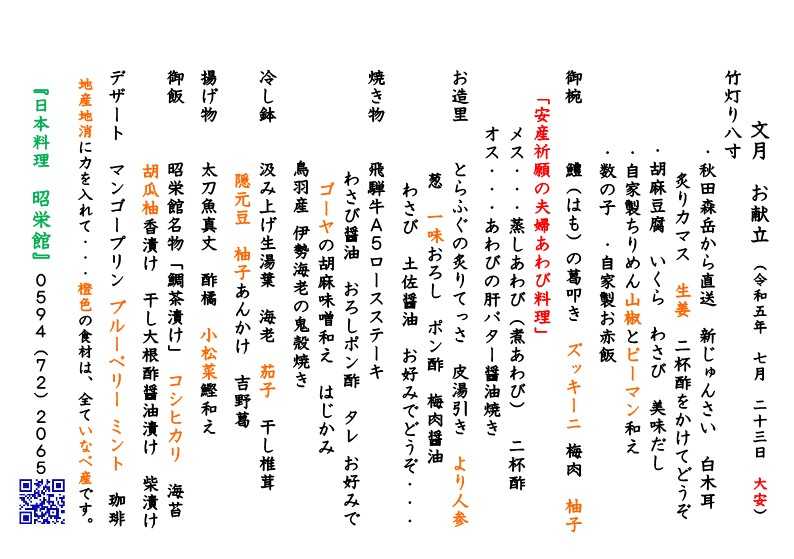 文月　お献立　（令和五年　七月　二十三日　大安）
竹灯り八寸
・秋田森岳から直送　新じゅんさい　白木耳
炙りカマス　生姜　二杯酢をかけてどうぞ
・胡麻豆腐　いくら　わさび　美味だし
・自家製ちりめん山椒とピーマン和え
・数の子　・自家製お赤飯
御椀　鱧（はも）の葛叩き　ズッキーニ　梅肉　柚子
「安産祈願の夫婦あわび料理」
メス・・・蒸しあわび（煮あわび）　二杯酢
オス・・・あわびの肝バター醤油焼き
お造里　とらふぐの炙りてっさ　皮湯引き　より人参
葱　一味おろし　ポン酢　梅肉醤油
わさび　土佐醤油　お好みでどうぞ・・・
焼き物　飛騨牛Ａ５ロースステーキ
わさび醤油　おろしポン酢　タレ　お好みで
ゴーヤの胡麻味噌和え　はじかみ
鳥羽産　伊勢海老の鬼殻焼き
冷し鉢　汲み上げ生湯葉　海老　茄子　干し椎茸
隠元豆　柚子あんかけ　吉野葛
揚げ物　太刀魚真丈　酢橘　小松菜鰹和え
御飯　昭栄館名物「鯛茶漬け」　コシヒカリ　海苔
胡瓜柚香漬け　干し大根酢醤油漬け　柴漬け
デザート　マンゴープリン　ブルーベリー　ミント　珈琲
地産地消に力を入れて・・・橙色の食材は、全ていなべ産です。
『日本料理　昭栄館』０５９４（７２）２０６５